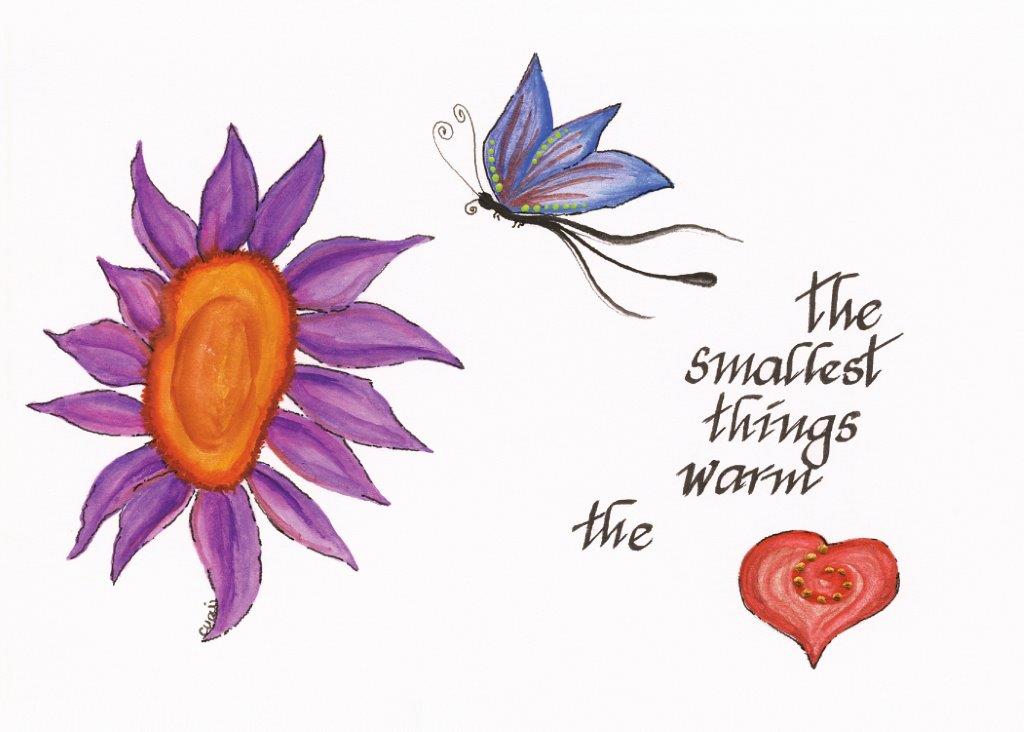 the
smallest
things
warm
the